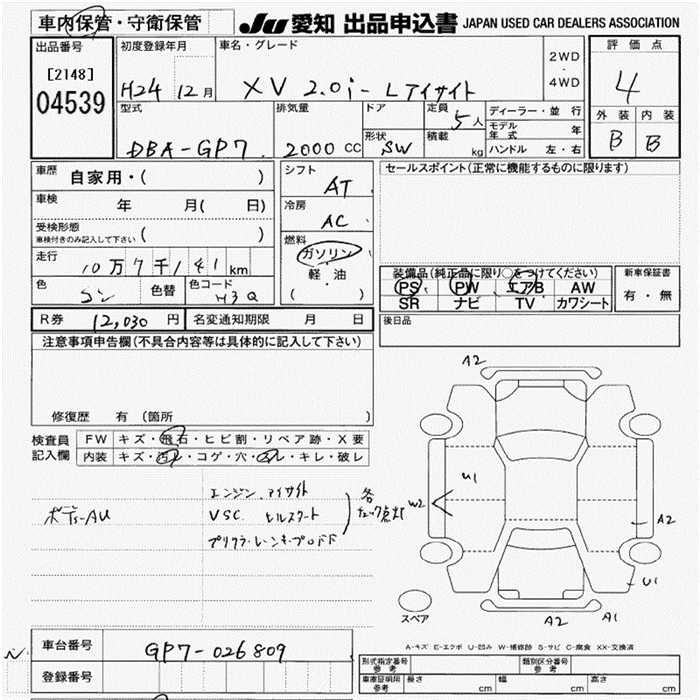 車内保管・守衛保管
JU 愛知 出品申込書 JAPAN USED CAR DEALERS ASSOCIATION
出品番号 [2148] 04539
初度登録年月 H24 12月
車名・グレード XV 2.0i-Lアイサイト
2WD・4WD
評価点 4
外装 内装
B B
型式 DBA-GP7
排気量 2000 CC
ドア
形状 SW
定員 5人
積載 kg
ディーラー・並行
モデル年式 年
ハンドル 左・右
車歴 自家用・( )
車検 年 月( 日)
受検形態 車検付きのみ記入して下さい ( )
走行 10万7千181km
色 色替 色コード H3Q
シフト AT
冷房 AC
燃料 ガソリン
軽・油
( )
セールスポイント(正常に機能するものに限ります)
装備品(純正品に限り○をつけてください)
PS PW エアB AW
SR ナビ TV カワシート
新車保証書
有・無
R券 12,030円 名変通知期限 月 日
後日品
注意事項申告欄(不具合内容等は具体的に記入して下さい)
修復歴 有 (箇所 )
検査員記入欄
FW キズ・飛石・ヒビ割・リペア跡・X要
内装 キズ・汚レ・コゲ・穴・スレ・キレ・破レ
ボディーAU
エンジン.アイサイト
VSC. ヒルスタート
プリクラ・レーンキープOFF
各チェック点灯
A2
U1
W2
A2
U1
スペア
A2
A1
A-キズ E-エクボ U-凹み W-補修跡 S-サビ C-腐食 XX-交換済
車台番号 GP7-026809
登録番号
型式指定番号 参考
類別区分番号 参考
車庫証明用 参考 長さ cm 幅 cm 高さ cm